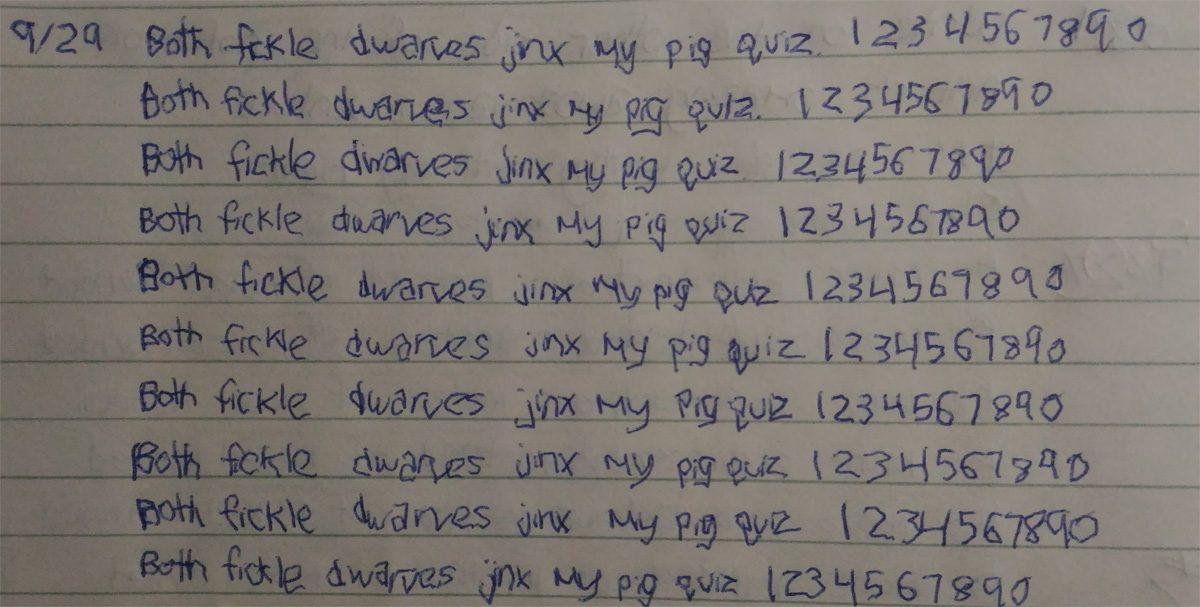 9/29 Both fickle dwarves jinx my pig quiz. 1234567890
Both fickle dwarves jinx my pig quiz. 1234567890
Both fickle dwarves jinx my pig quiz 1234567890
Both fickle dwarves jinx my pig quiz 1234567890
Both fickle dwarves jinx my pig quiz 1234567890
Both fickle dwarves jinx my pig quiz 1234567890
Both fickle dwarves jinx my pig quiz 1234567890
Both fckle dwarves jinx my pig quiz 1234567890
Both fickle dwarves jinx my pig quiz 1234567890
Both fickle dwarves jinx my pig quiz 1234567890